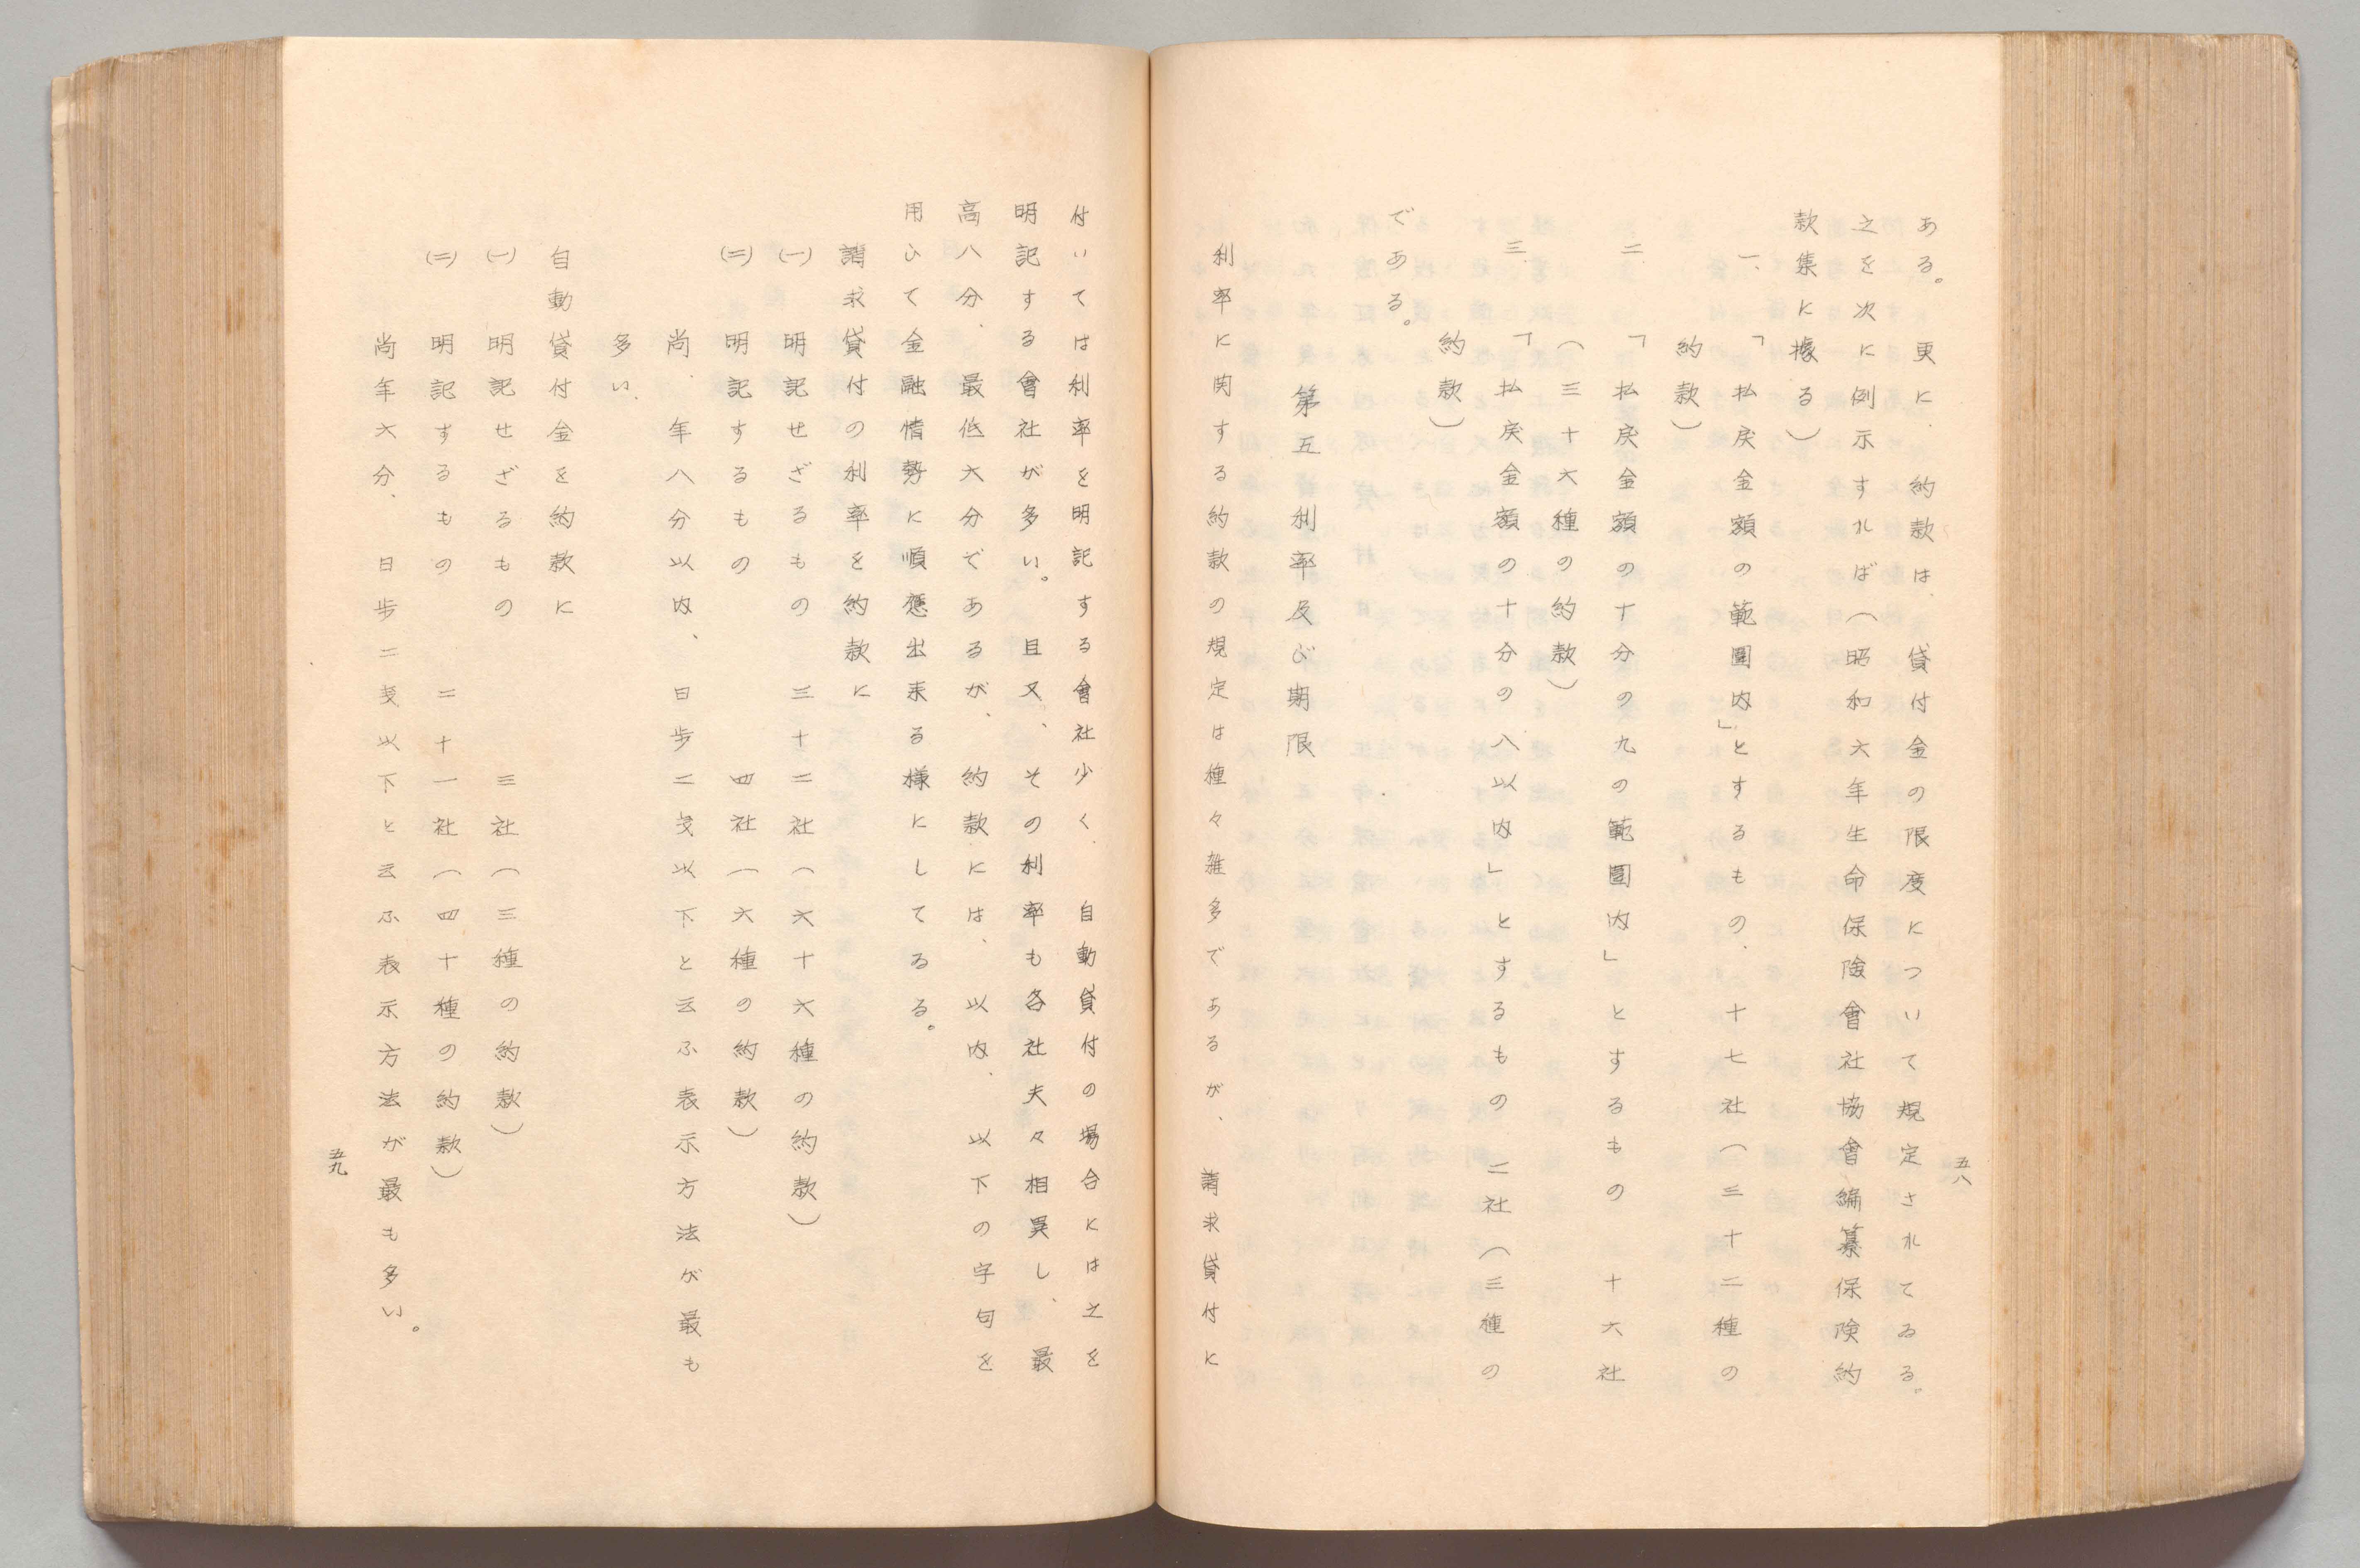 五八
ある。更に、約款は、貸付金の限度について規定されてゐる。
之を次に例示すれば(昭和六年生命保険會社協會編纂保険約
款集に據る)
一、「払戻金額の範圍内」とするもの、十七社(三十二種の
約款)
二、「払戻金額の十分の九の範圍内」とするもの 十六社
(三十六種の約款)
三、「払戻金額の十分の八以内」とするもの 二社(三種の
約款)
である。
第五 利率及び期限
利率に関する約款の規定は種々雑多であるが、請求貸付に
付いては利率を明記する會社少く、自動貸付の場合には之を
明記する會社が多い。且又、その利率も各社夫々相異し、最
高八分、最低六分であるが、約款には、以内、以下の字句を
用ひて金融情勢に順應出来る様にしてゐる。
請求貸付の利率を約款に
(一) 明記せざるもの 三十二社(六十六種の約款)
(二) 明記するもの 四社(六種の約款)
尚、年八分以内、日歩二戔以下と云ふ表示方法が最も
多い、
自動貸付金を約款に
(一) 明記せざるもの 三社(三種の約款)
(二) 明記するもの 二十一社(四十種の約款)
尚年六分、日歩二戔以下と云ふ表示方法が最も多い。
五九